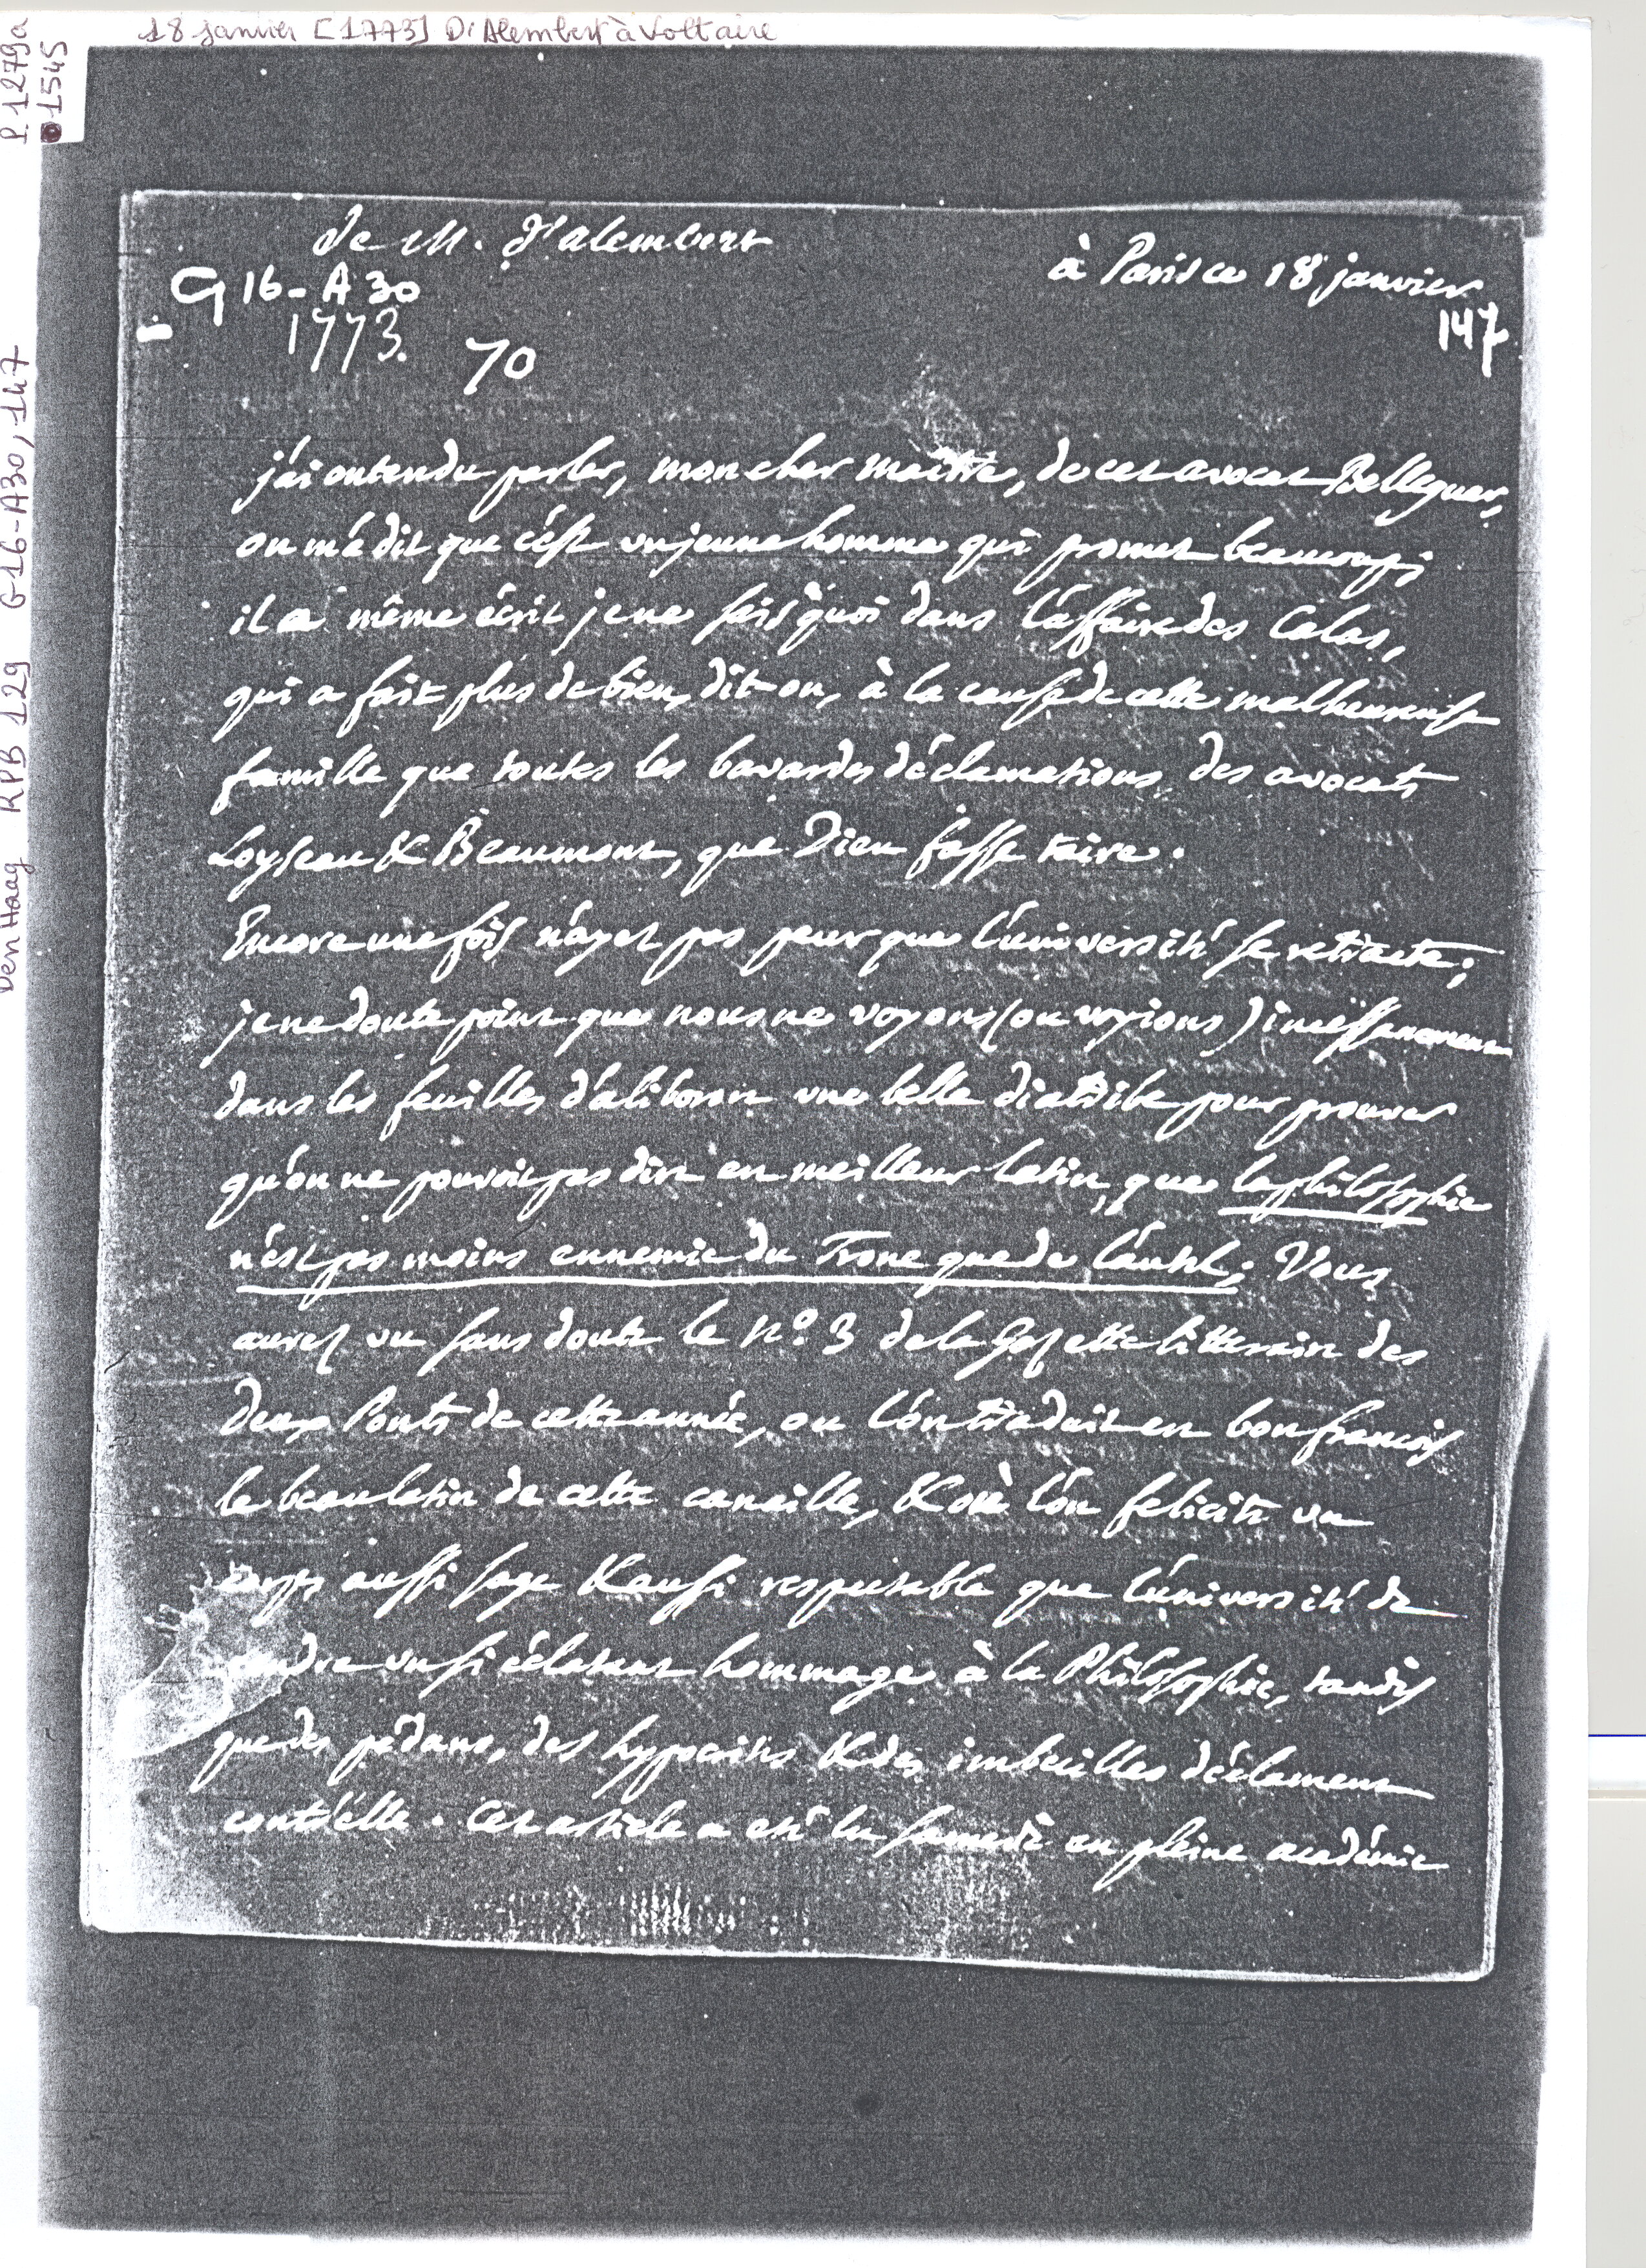 18 janvier [1773] D'Alembert à Voltaire
P. 1279a
1545
Den Haag KPB 129 G16-A30, 147
de M. d'alembert
à Paris ce 18 janvier
G16-A30
147
1773.
70
j'ai entendu parler, mon cher maitre, de cet avocat Belleguer,
on m'a dit que c'est un jeune homme qui promet beaucoup;
il a même écrit je ne sais quoi dans l'affaire des Calas,
qui a fait plus de bien, dit-on, à la cause de cette malheureuse
famille que toutes les bavardes déclamations des avocats
Loyseau & Beaumont, que Dieu fasse taire.
Encore une fois n'ayez pas peur que l'université se retracte;
je ne doute point que nous ne voyons (ou voyions) incessamment
dans les feuilles d'aliboron une belle diatribe pour prouver
qu'on ne pouvoit pas dire en meilleur latin, que la philosophie
n'est pas moins ennemie du Trone que de l'autel; Vous
aurez vu sans doute le n.º 3 de la Gazette litteraire des
deux Ponts de cette année, ou l'on traduit en bon françois
le beau latin de cette canaille, & où l'on felicite un
corps aussi sage & aussi respectable que l'université de
rendre un si éclatant hommage à la Philosophie, tandis
que des pédans, des hypocrites & des imbecilles déclament
contr'elle. Cet article a été lu samedi en pleine académie